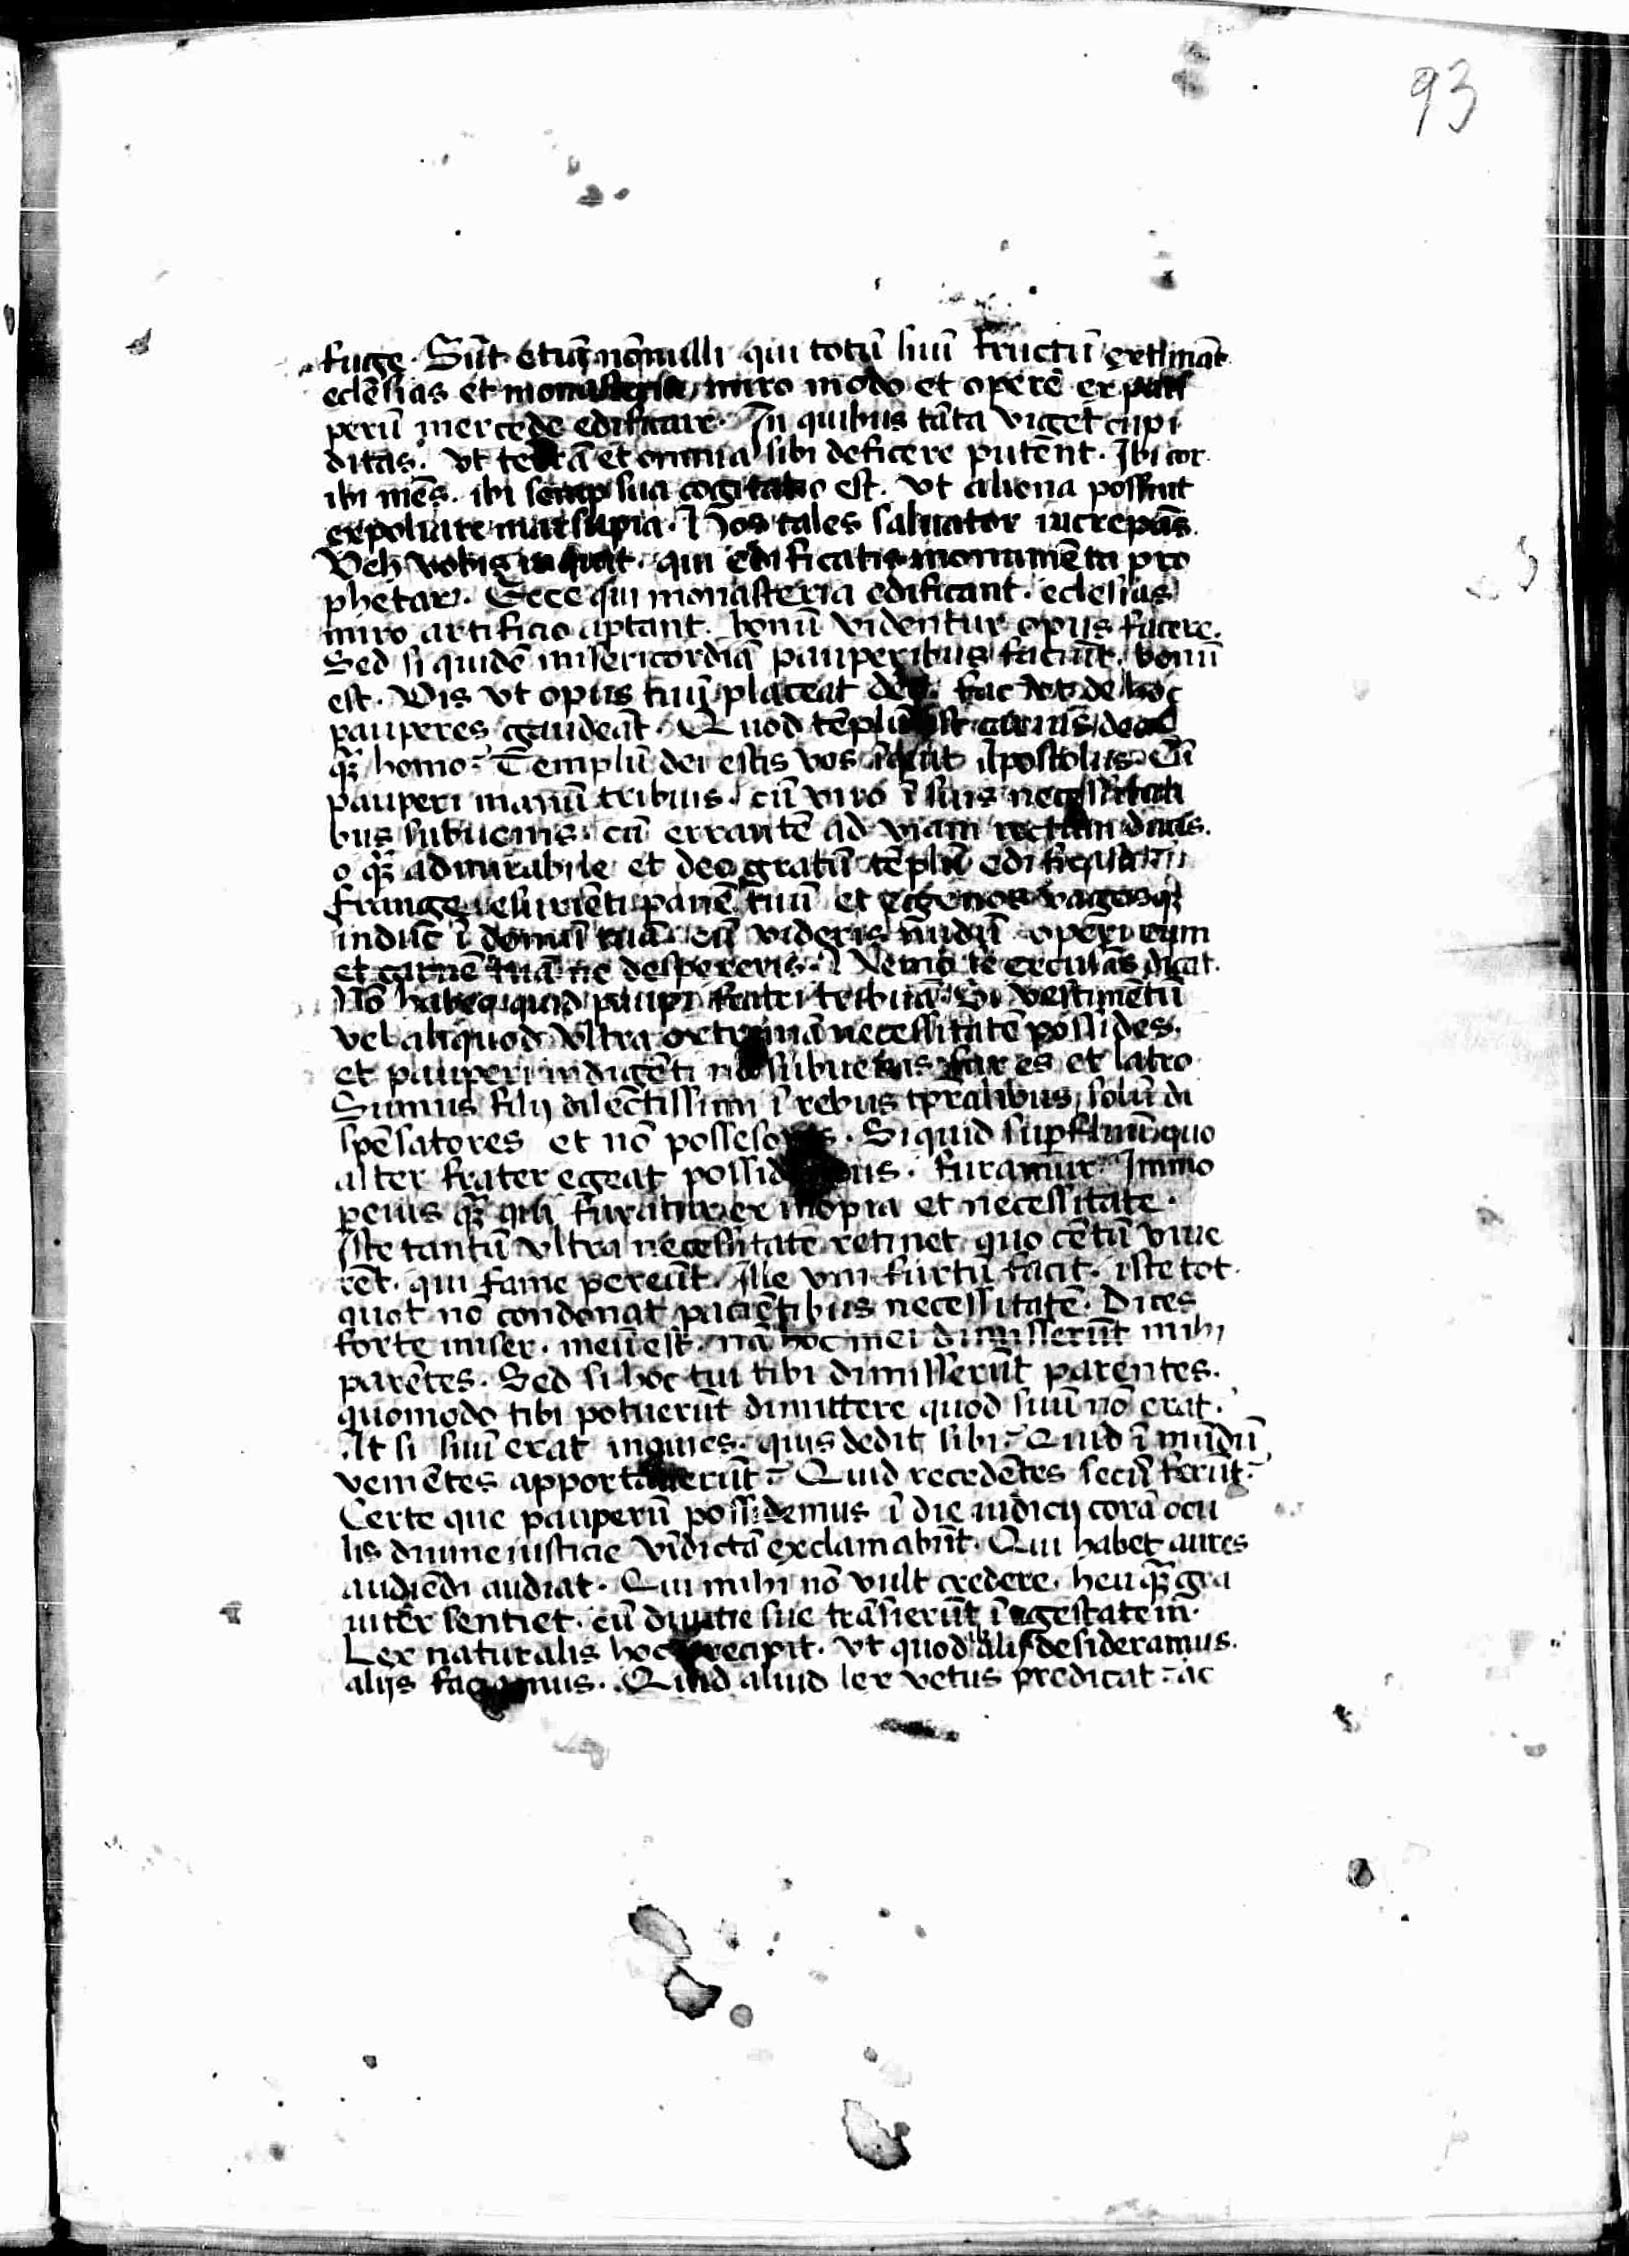 93
fuge. Sūt etiā nōnulli qui totū suū fructū extimāt
eclēsias et monasteria miro modo et opere ex pau
perū mercede edificare. In quibus tāta viget cupi
ditas. vt terrā et omnia sibi deficere putēnt. Ibi cor.
ibi mēs. ibi semp sua cogitatio est. vt aliena possint
expoliare marsupia. Hos tales saluator increpās.
Veh vobis inquit. qui edificatis monumēta pro
phetaꝝ. Ecce qui monasteria edificant. eclesias
miro artificio aptant. bonū videntur opus facere.
Sed si quidē misericordiā pauperibus faciūt. bonū
est. Vis vt opus tuū placeat deo. fac vt de hoc
pauperes gaudeāt. Quod tēplū est carius deo
qꝫ homo? Templū dei estis vos īquit apostolus. Cū
pauperi manū tribuis. cū viro ī suis necessitati
bus subuenis. cū errantē ad viam rectam ducis.
o qꝫ admirabile et deo gratū tēplū edificasti
Frange esuriēti panē tuū et egenos vagosqꝫ
induc ī domū tuā. cū videris nudū operi eum
et carnē tuā ne despexeris. Nemo se excusās dicat.
Nō habeo quid paupi fratri tribuā. Si vestimētū
vel aliquod vltra extremā necessitatē possides.
et pauperi indigēti nō subuenis fur es et latro.
Sumus filij dilectissimi ī rebus tpralibus solū di
spēsatores et nō possesores. Si quid superfluū quo
alter frater egeat possidemus. furamur. Immo
peius qꝫ qui furatur ex inopia et necessitate.
Iste tantū vltra necessitatē retinet quo cētū viue
rēt. qui fame pereūt. Ille vni furtū facit. iste tot.
quot nō condonat paciētibus necessitatē. Dices
forte miser. meū est. nā hoc mei dimisserūt mihi
parētes. Sed si hoc tui tibi dimisserūt parentes.
quomodo tibi potuerūt dimittere quod suū nō erat.
At si suū erat inquies. quis dedit sibi? Quid ī mūdū
veniētes apportauerūt? Quid recedētes secū ferūt?
Certe que pauperū possidemus ī die iudicij corā ocu
lis diuine iusticie vīdictā exclamabūt. Qui habet aures
audiēdi audiat. Qui mihi nō vult credere. heu qꝫ gra
uiter sentiet. cū diuitie sue trāsierūt ī egestatem.
Lex naturalis hoc precipit. vt quod alijs desideramus.
alijs faciamus. Quid aliud lex vetus predicat? ac